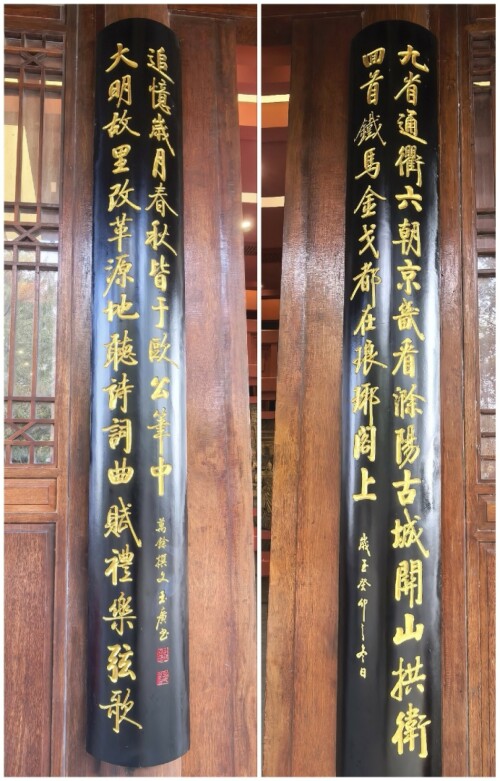 九省通衢六朝京畿看滁陽古城開山拱衛
回首鐵馬金戈都在琅琊閣上
歲癸卯之冬日
大明故里改革源地聽詩詞曲賦禮樂弦歌
追憶歲月春秋皆于歐公筆中
萬餘撰文